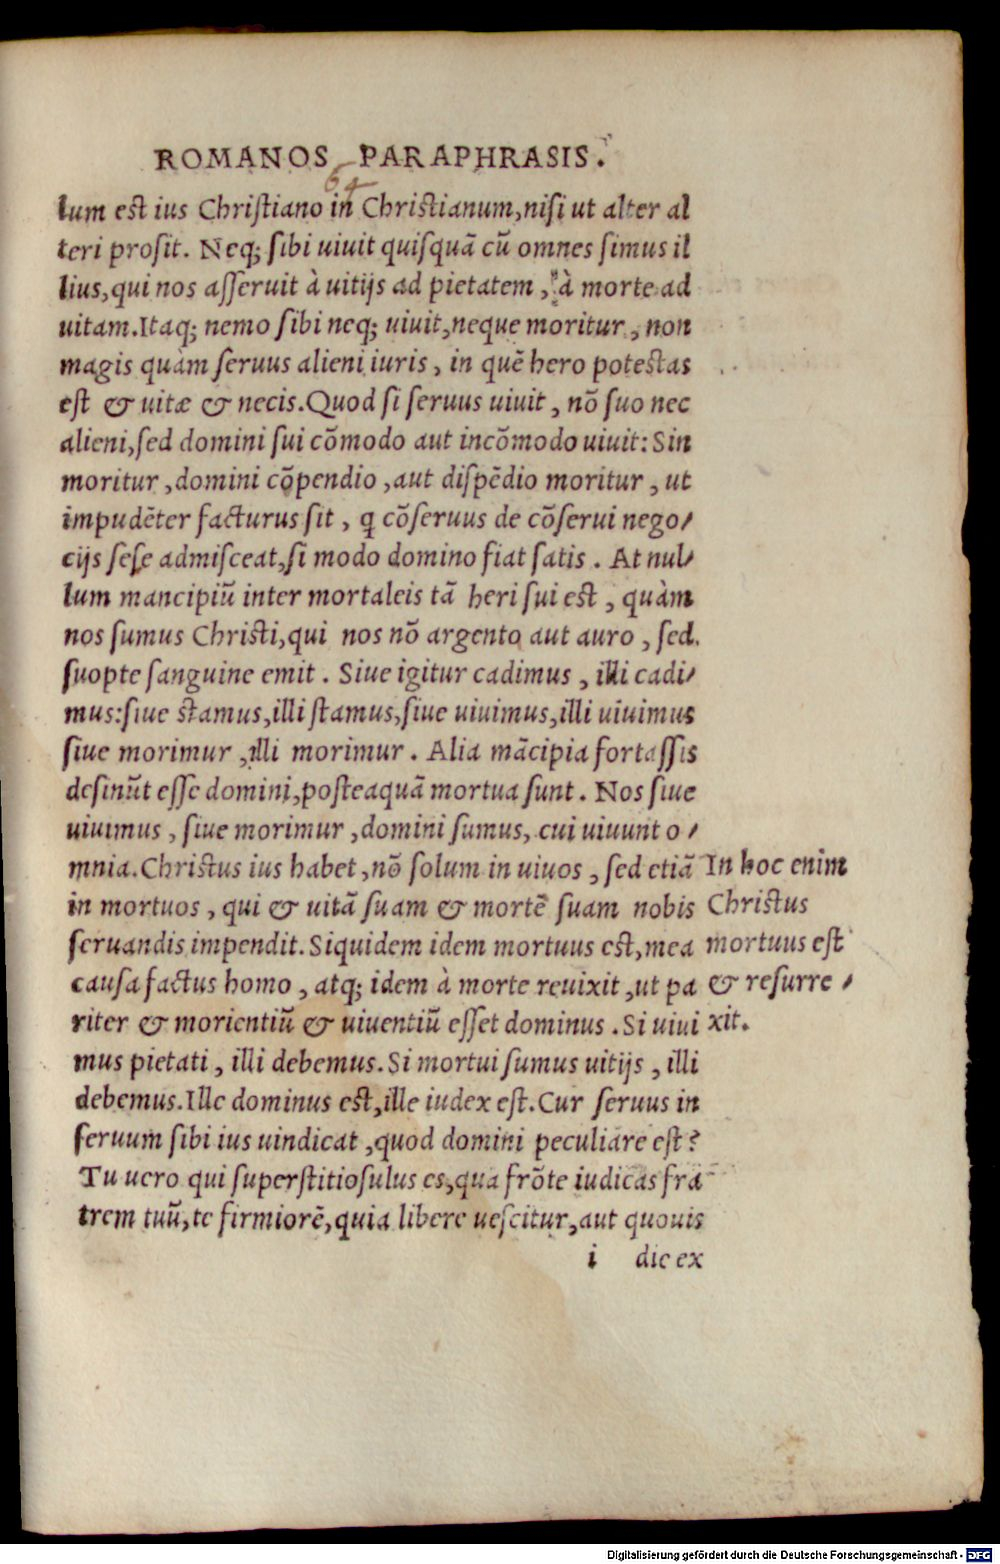 ROMANOS PARAPHRASIS.
64
lum est ius Christiano in Christianum, nisi ut alter al
teri prosit. Neq; sibi uiuit quisquā cū omnes simus il
lius, qui nos asseruit à uitijs ad pietatem, à morte ad
uitam. Itaq; nemo sibi neq; uiuit, neque moritur, non
magis quàm seruus alieni iuris, in quē hero potestas
est & uitæ & necis. Quod si seruus uiuit, nō suo nec
alieni, sed domini sui cōmodo aut incōmodo uiuit: Sin
moritur, domini cōpendio, aut dispēdio moritur, ut
impudēter facturus sit, q cōseruus de cōserui nego/
cijs sese admisceat, si modo domino fiat satis. At nul/
lum mancipiū inter mortaleis tā heri sui est, quàm
nos sumus Christi, qui nos nō argento aut auro, sed
suopte sanguine emit. Siue igitur cadimus, illi cadi/
mus: siue stamus, illi stamus, siue uiuimus, illi uiuimus
siue morimur, illi morimur. Alia mācipia fortassis
desinūt esse domini, posteaquā mortua sunt. Nos siue
uiuimus, siue morimur, domini sumus, cui uiuunt o/
mnia. Christus ius habet, nō solum in uiuos, sed etiā
in mortuos, qui & uitā suam & mortē suam nobis
seruandis impendit. Siquidem idem mortuus est, mea
causa factus homo, atq; idem à morte reuixit, ut pa
riter & morientiū & uiuentiū esset dominus. Si uiui
mus pietati, illi debemus. Si mortui sumus uitijs, illi
debemus. Ille dominus est, ille iudex est. Cur seruus in
seruum sibi ius uindicat, quod domini peculiare est?
Tu uero qui superstitiosulus es, qua frōte iudicas fra
trem tuū, te firmiorē, quia libere uescitur, aut quouis
i dic ex
In hoc enim
Christus
mortuus est
& resurre/
xit.
Digitalisierung gefördert durch die Deutsche Forschungsgemeinschaft - DFG